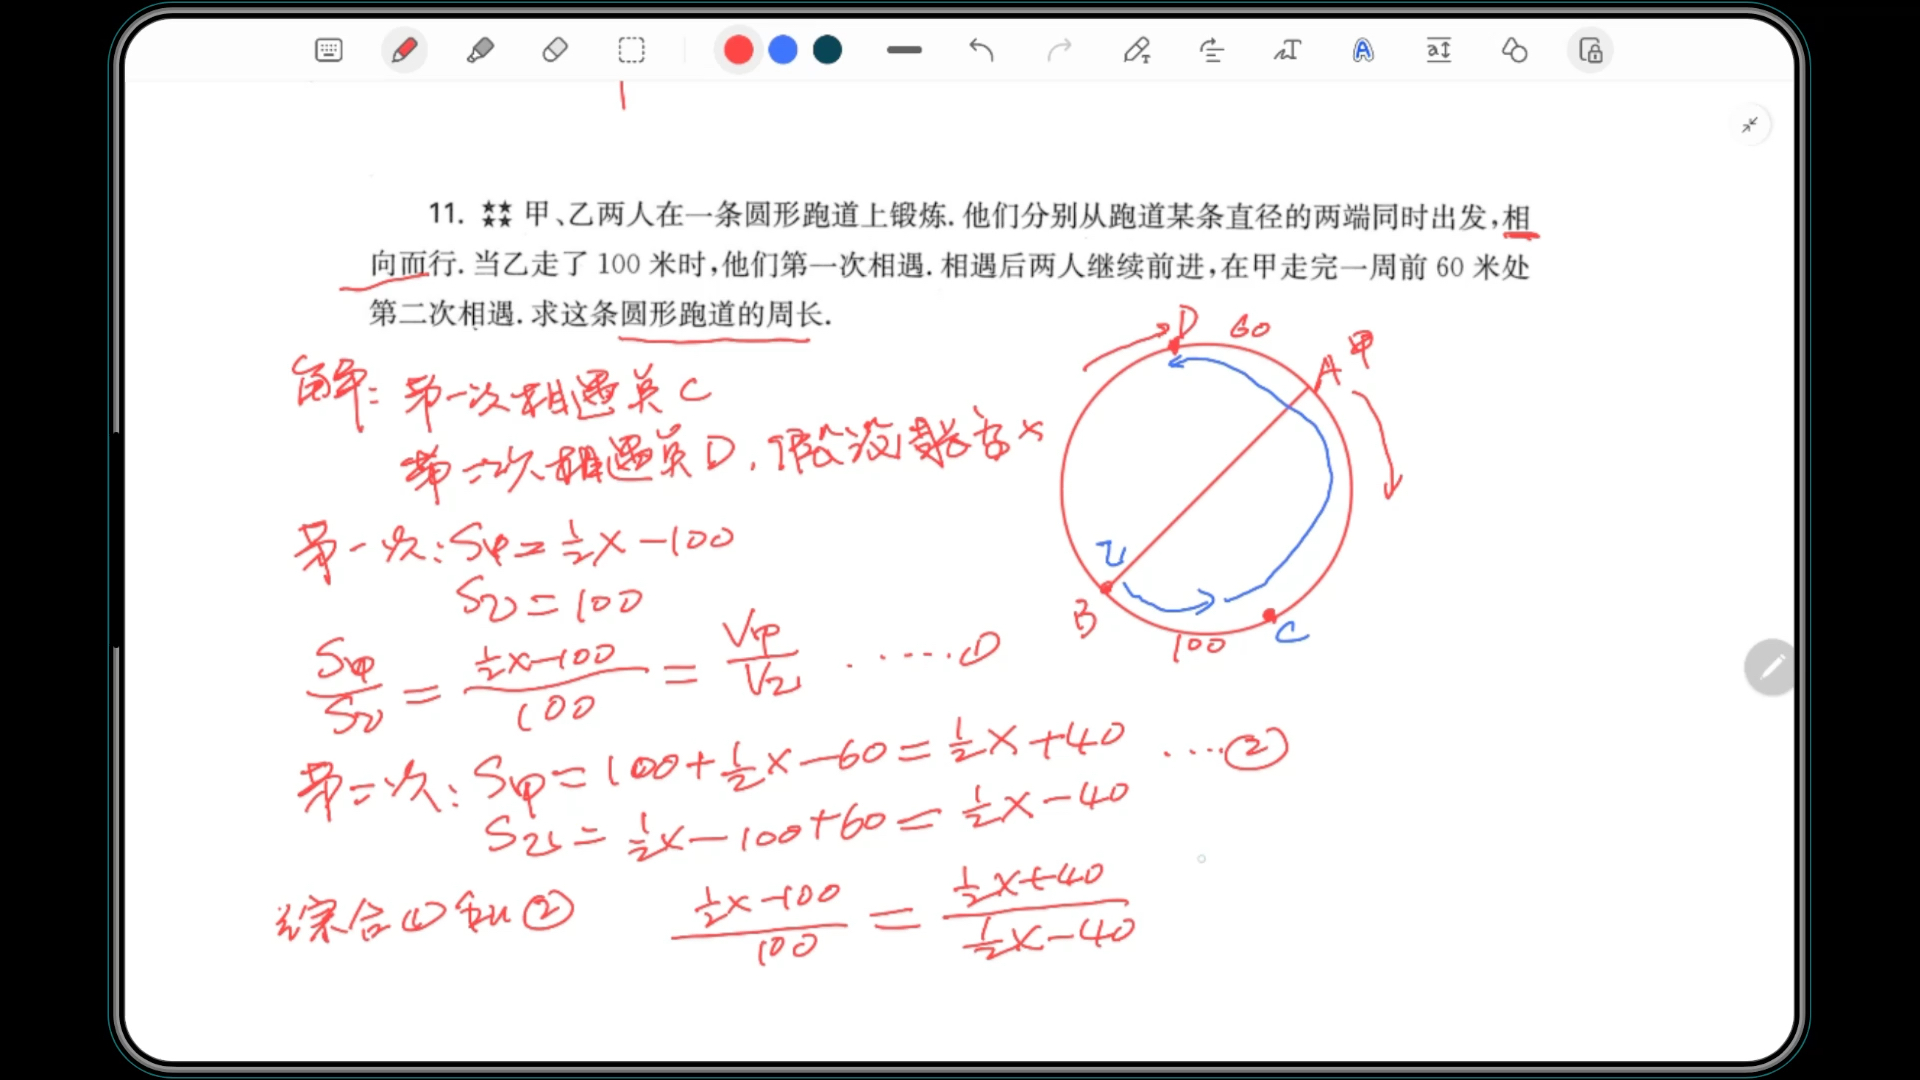 11. ★★★★ 甲、乙两人在一条圆形跑道上锻炼. 他们分别从跑道某条直径的两端同时出发,相
向而行. 当乙走了 100 米时,他们第一次相遇. 相遇后两人继续前进,在甲走完一周前 60 米处
第二次相遇. 求这条圆形跑道的周长.
D 60
A 甲
解: 第一次相遇点 C
第二次相遇点 D, 假设周长为 x
第一次: S甲 = ½x - 100
乙
S乙 = 100
B 100 C
S甲/S乙 = (½x-100)/100 = V甲/V乙 ......①
第二次: S甲 = 100+½x-60 = ½x+40 ....②
S乙 = ½x-100+60 = ½x-40
综合①和② (½x-100)/100 = (½x+40)/(½x-40)